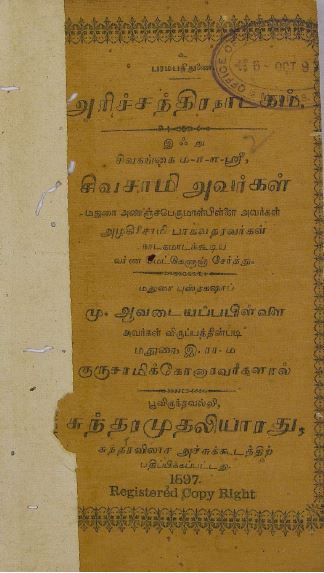 உ
அரிச்சந்திரநாடகம்.
இஃது
சிவகங்கை ம-ா-ா-ஸ்ரீ,
சிவசாமி அவர்கள்
மதுரை அவர்கள்
பாகவதரவர்கள்
நாடகமாடக்கூடிய
வர்ண சேர்த்து.
மதுரை புஸ்தகஷாப்
மு. ஆவடையப்பபிள்ளை
அவர்கள் விருப்பத்தின்படி
மதுரை இ. ரா-ம
குருசாமிக்கோனாரவர்களால்
பூவிருந்தவல்லி,
சுந்தரமுதலியாரது,
சுந்தரவிலாச அச்சுக்கூடத்திற்
பதிப்பிக்கப்பட்டது.
1897.
Registered Copy Right